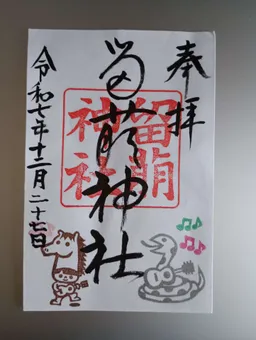 奉拝
留萌神社
留萌神社
令和七年十二月二十七日